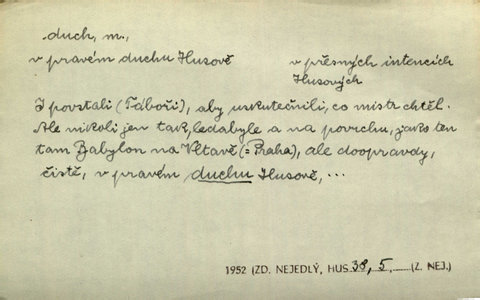 duch, m.,
v pravém duchu Husově
v přesných intencích
Husových
I povstali (Táboři), aby uskutečnili, co mistr chtěl.
Ale nikoli jen tak, ledabyle a na povrchu, jako ten
tam Babylon na Vltavě (= Praha), ale doopravdy,
čistě, v pravém duchu Husově, ...
1952 (ZD. NEJEDLÝ, HUS 38, 5. (Z. NEJ.)